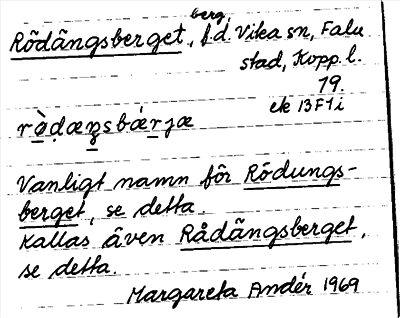 berg,
Rödängsberget, f.d. Vika sn, Falu
stad, Kopp. l.
19.
ek 13F1i
rödæŋsbærjæ
Vanligt namn för Rödungs-
berget, se detta.
Kallas även Rådängsberget,
se detta.
Margareta Andér 1969